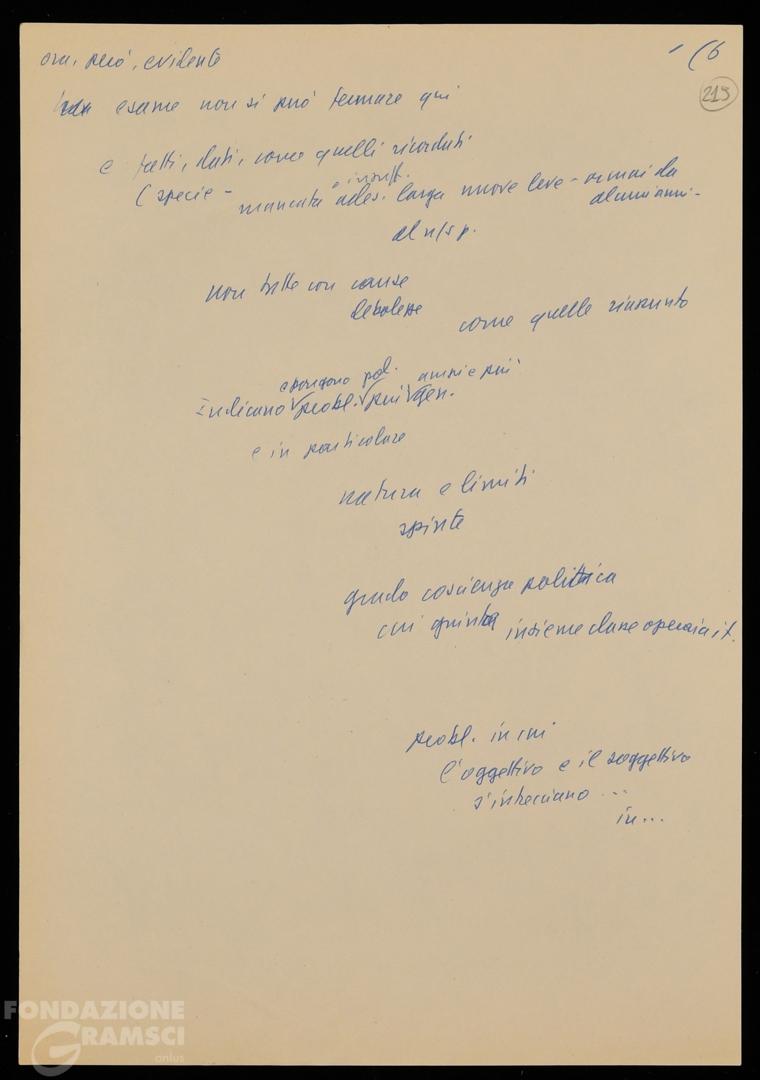 ora, però, evidente
- (6
219
esame non si può fermare qui
e fatti, dati, come quelli ricordati
(specie -
e insuff.
mancata ades. larga nuove leve - ormai da
alcuni anni -
al n/s p.
non tutte con cause
debolezze
come quelle riassunto
pol. ampi e più
Indicano probl. più gen.
e in particolare
natura e limiti
spinte
grado coscienza politica
cui giunta insieme classe operaia it.
probl. in cui
l'oggettivo e il soggettivo
s'intrecciano ...
in ...
FONDAZIONE
GRAMSCI
onlus